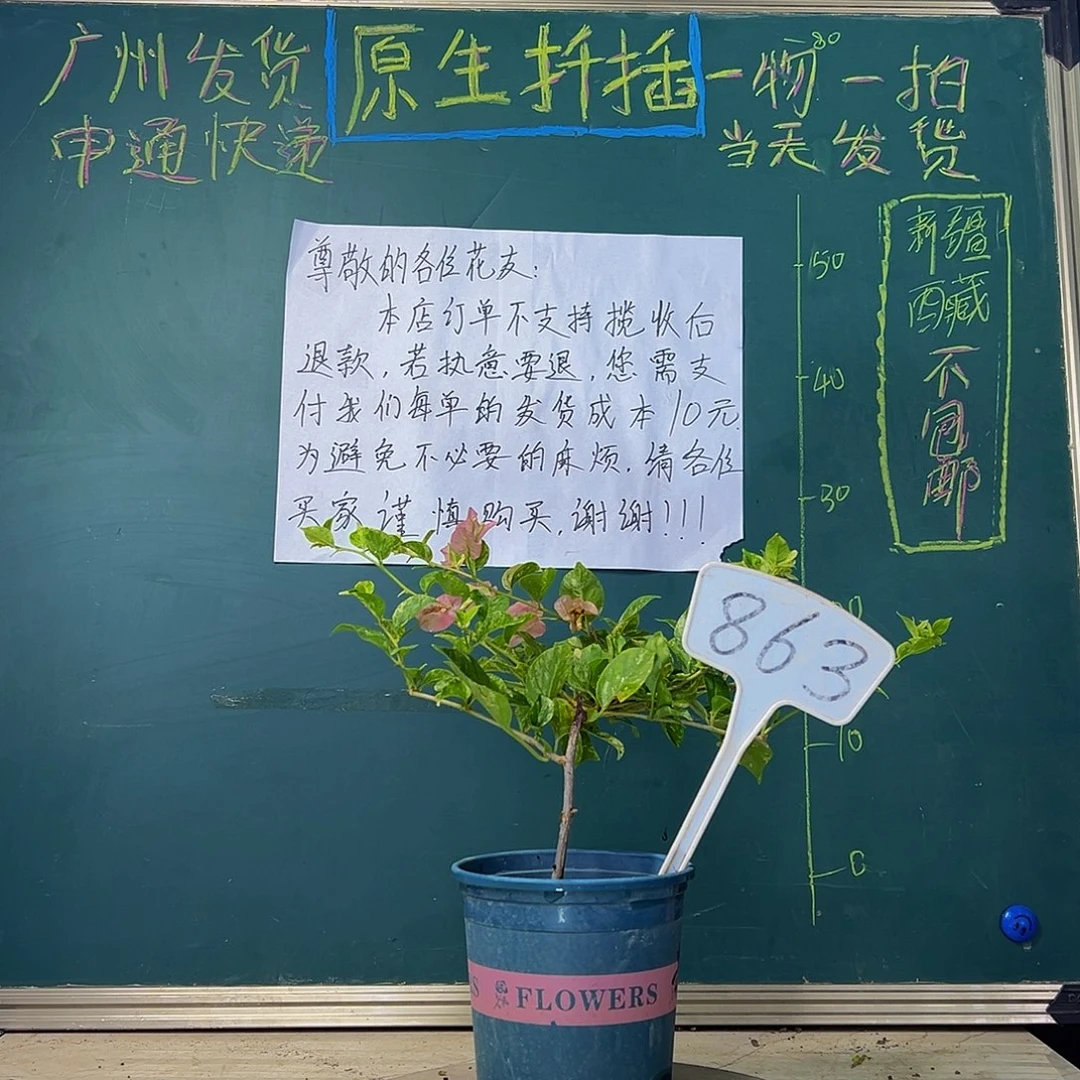 广州发货
申通快递
原生扦插
一物一拍
80
当天发货
50
40
30
10
0
新疆
西藏
不
包
邮
尊敬的各位花友:
本店订单不支持揽收后
退款,若执意要退,您需支
付我们每单的发货成本10元
为避免不必要的麻烦,请各位
买家谨慎购买,谢谢!!!
863
FLOWERS